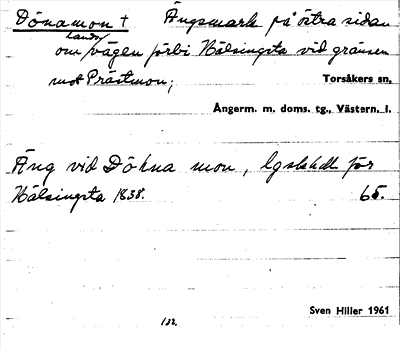 Dönamon † Ängsmark på östra sidan
om lands/vägen förbi Hälsingsta vid gränsen
mot Prästmon; Torsåkers sn.
Ångerm. m. doms. tg., Västern. l.
Äng vid Döhna mon, lgsksh för
Hälsingsta 1838. 65.
Sven Hiller 1961
182.